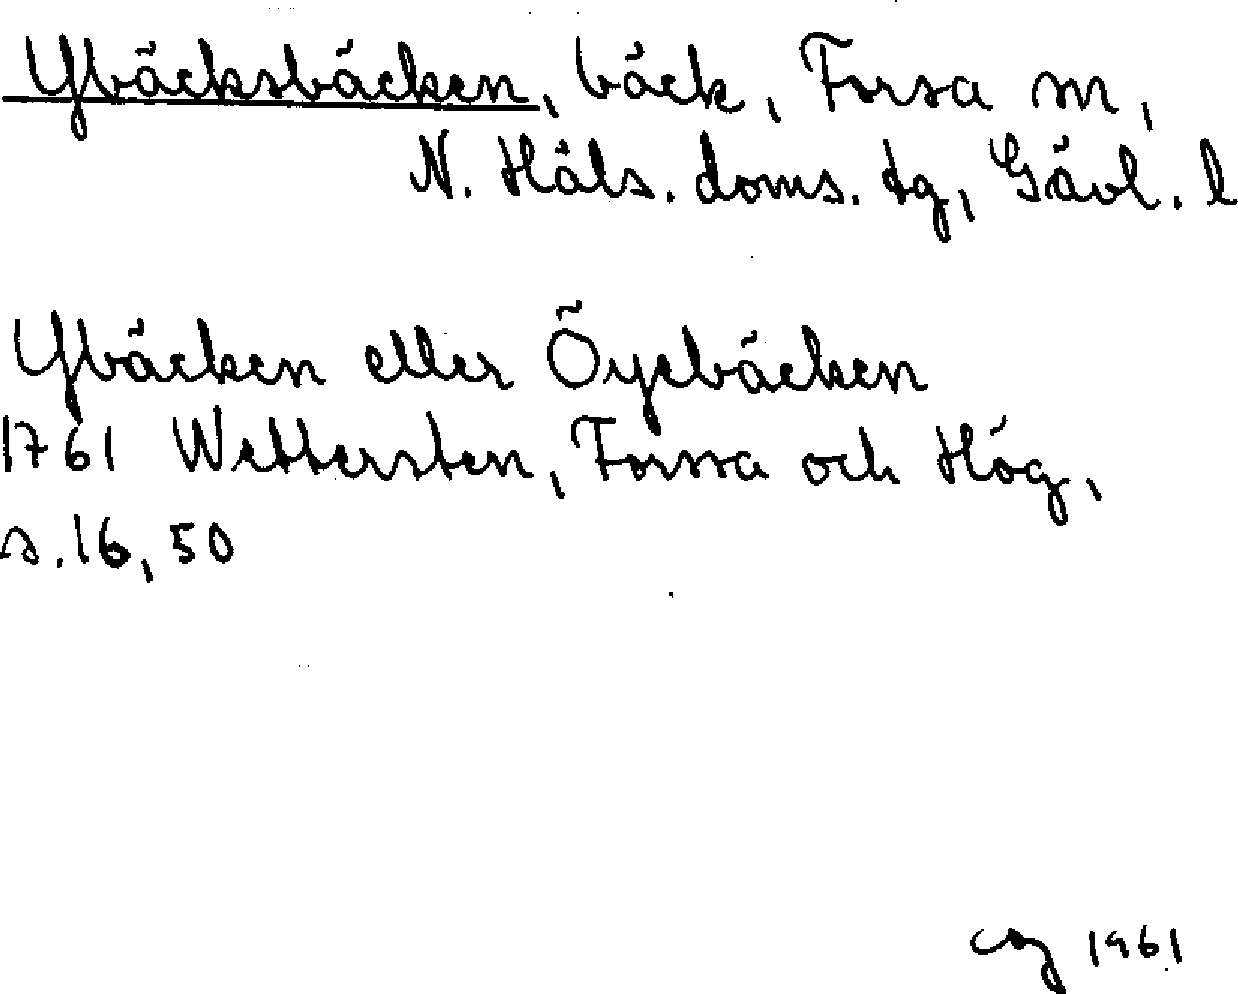 Ybäcksbäcken, bäck, Forsa sn,
N. Häls. doms. tg, Gävl. l
Ybäcken eller Öyebäcken
1761 Wettersten, Forssa och Hög,
s. 16, 50
1961